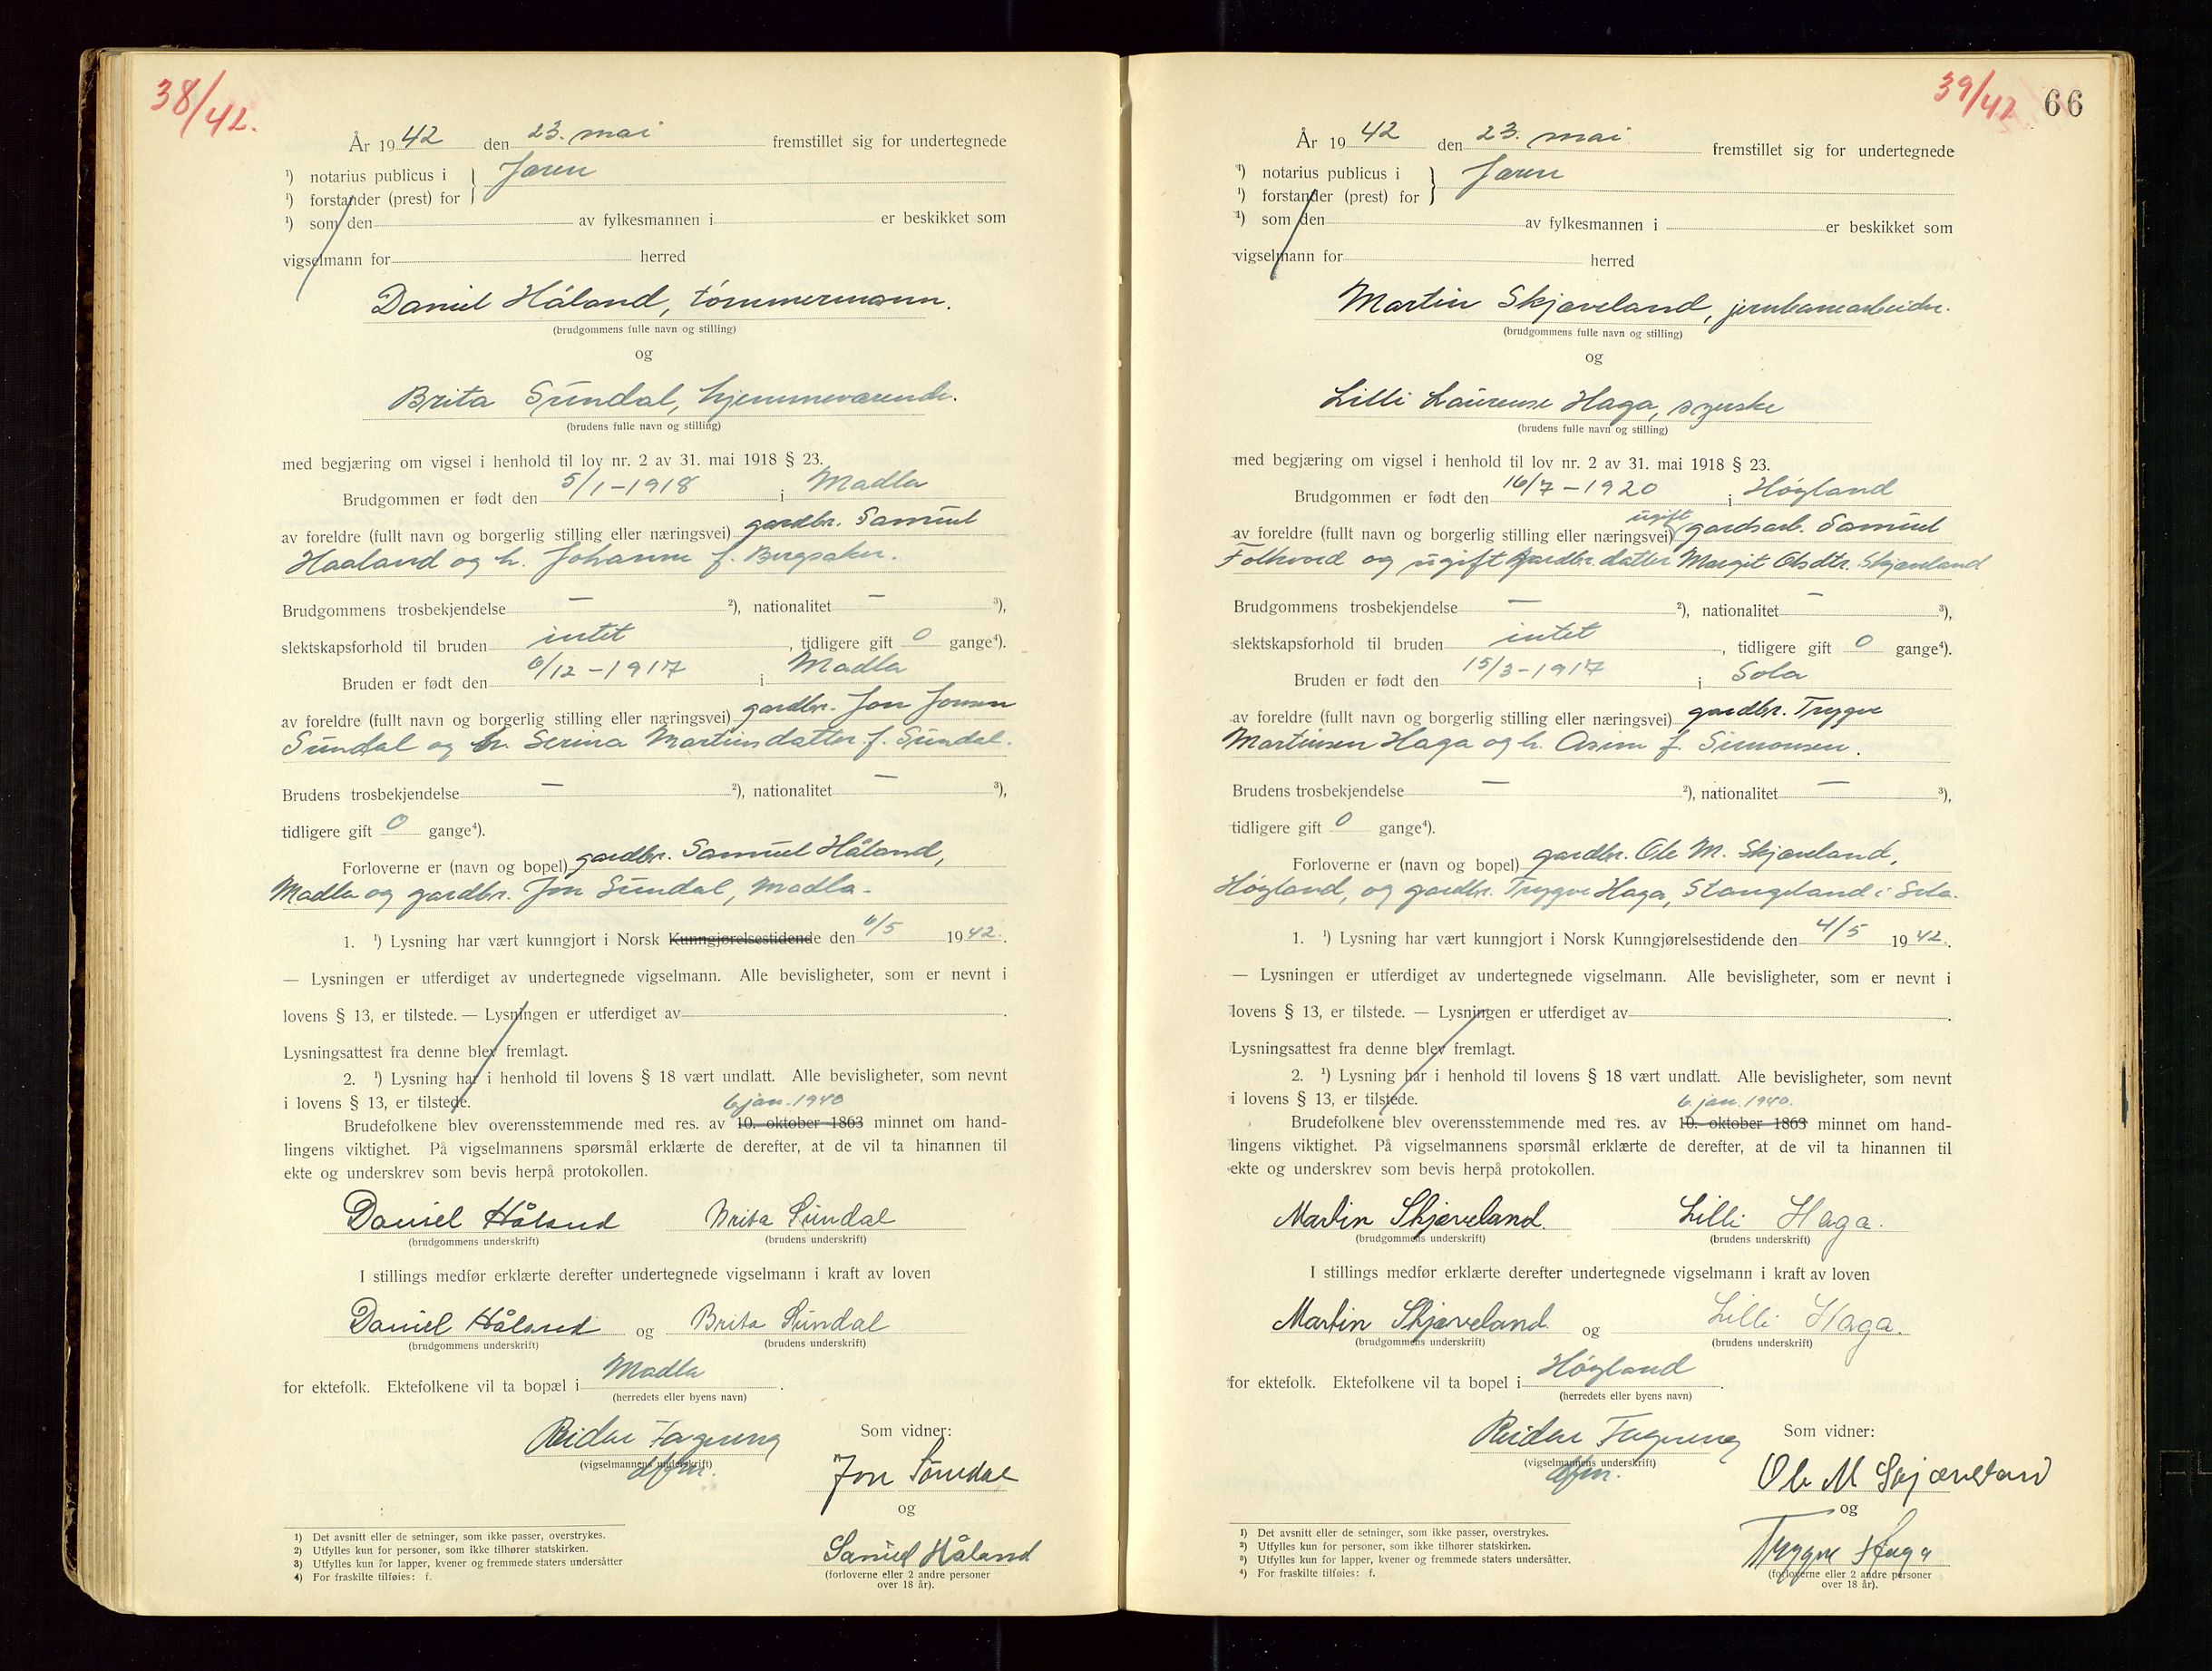 38/42.
År 1942 den 23. mai fremstillet sig for undertegnede
¹) notarius publicus i } Jæren
¹) forstander (prest) for
¹) som den av fylkesmannen i er beskikket som
vigselmann for herred
Daniel Håland, tømmermann.
(brudgommens fulle navn og stilling)
og
Brita Sundal, hjemmeværende.
(brudens fulle navn og stilling)
med begjæring om vigsel i henhold til lov nr. 2 av 31. mai 1918 § 23.
Brudgommen er født den 5/1-1918 i Madla
av foreldre (fullt navn og borgerlig stilling eller næringsvei) gardbr. Samuel
Haaland og h. Johanne f. Bergsaker.
Brudgommens trosbekjendelse — ²), nationalitet — ³),
slektskapsforhold til bruden intet, tidligere gift 0 gange⁴).
Bruden er født den 6/12-1917 i Madla
av foreldre (fullt navn og borgerlig stilling eller næringsvei) gardbr. Jon Jonsen
Sundal og h. Serina Martinsdatter f. Sundal.
Brudens trosbekjendelse — ²), nationalitet — ³),
tidligere gift 0 gange⁴).
Forloverne er (navn og bopel) gardbr. Samuel Håland,
Madla og gardbr. Jon Sundal, Madla.
1. ¹) Lysning har vært kunngjort i Norsk Kunngjørelsestidende den 6/5 1942.
— Lysningen er utferdiget av undertegnede vigselmann. Alle bevisligheter, som er nevnt i
lovens § 13, er tilstede. — Lysningen er utferdiget av .
Lysningsattest fra denne blev fremlagt.
2. ¹) Lysning har i henhold til lovens § 18 vært undlatt. Alle bevisligheter, som nevnt
i lovens § 13, er tilstede. 6 jan. 1940
Brudefolkene blev overensstemmende med res. av 10. oktober 1863 minnet om hand-
lingens viktighet. På vigselmannens spørsmål erklærte de derefter, at de vil ta hinannen til
ekte og underskrev som bevis herpå protokollen.
Daniel Håland Brita Sundal
(brudgommens underskrift) (brudens underskrift)
I stillings medfør erklærte derefter undertegnede vigselmann i kraft av loven
Daniel Håland og Brita Sundal
(brudgommens underskrift) (brudens underskrift)
for ektefolk. Ektefolkene vil ta bopæl i Madla .
(herredets eller byens navn)
Reidar Som vidner:
(vigselmannens underskrift)
Jon Sundal
og
Samuel Håland
(forloverne eller 2 andre personer
over 18 år).
1) Det avsnitt eller de setninger, som ikke passer, overstrykes.
2) Utfylles kun for personer, som ikke tilhører statskirken.
3) Utfylles kun for lapper, kvener og fremmede staters undersåtter
4) For fraskilte tilføies: f.
39/42 66
År 1942 den 23. mai fremstillet sig for undertegnede
¹) notarius publicus i } Jæren
¹) forstander (prest) for
¹) som den av fylkesmannen i er beskikket som
vigselmann for herred
Martin Skjæveland, jernbanearbeider.
(brudgommens fulle navn og stilling)
og
Lilli Laurense Haga, syerske
(brudens fulle navn og stilling)
med begjæring om vigsel i henhold til lov nr. 2 av 31. mai 1918 § 23.
Brudgommen er født den 16/7-1920 i Høyland
av foreldre (fullt navn og borgerlig stilling eller næringsvei) ugift gardsarb. Samuel
Folkvord og ugift gardbr.datter Margit Olsdtr. Skjæveland
Brudgommens trosbekjendelse — ²), nationalitet — ³),
slektskapsforhold til bruden intet, tidligere gift 0 gange⁴).
Bruden er født den 15/3-1917 i Sola
av foreldre (fullt navn og borgerlig stilling eller næringsvei) gardbr. Trygve
Martinsen Haga og h. Asine f. Simonsen.
Brudens trosbekjendelse — ²), nationalitet — ³),
tidligere gift 0 gange⁴).
Forloverne er (navn og bopel) gardbr. Ole M. Skjæveland,
Høyland, og gardbr. Trygve Haga, Stangeland i Sola.
1. ¹) Lysning har vært kunngjort i Norsk Kunngjørelsestidende den 4/5 1942.
— Lysningen er utferdiget av undertegnede vigselmann. Alle bevisligheter, som er nevnt i
lovens § 13, er tilstede. — Lysningen er utferdiget av .
Lysningsattest fra denne blev fremlagt.
2. ¹) Lysning har i henhold til lovens § 18 vært undlatt. Alle bevisligheter, som nevnt
i lovens § 13, er tilstede. 6 jan. 1940.
Brudefolkene blev overensstemmende med res. av 10. oktober 1863 minnet om hand-
lingens viktighet. På vigselmannens spørsmål erklærte de derefter, at de vil ta hinannen til
ekte og underskrev som bevis herpå protokollen.
Martin Skjæveland. Lilli Haga.
(brudgommens underskrift) (brudens underskrift)
I stillings medfør erklærte derefter undertegnede vigselmann i kraft av loven
Martin Skjæveland. og Lilli Haga.
(brudgommens underskrift) (brudens underskrift)
for ektefolk. Ektefolkene vil ta bopel i Høyland .
(herredets eller byens navn)
Reidar Som vidner:
(vigselmannens underskrift)
Ole M Skjæveland
og
Trygve Haga
(forloverne eller 2 andre personer
over 18 år).
1) Det avsnitt eller de setninger, som ikke passer, overstrykes.
2) Utfylles kun for personer, som ikke tilhører statskirken.
3) Utfylles kun for lapper, kvener og fremmede staters undersåtter.
4) For fraskilte tilføies: f.